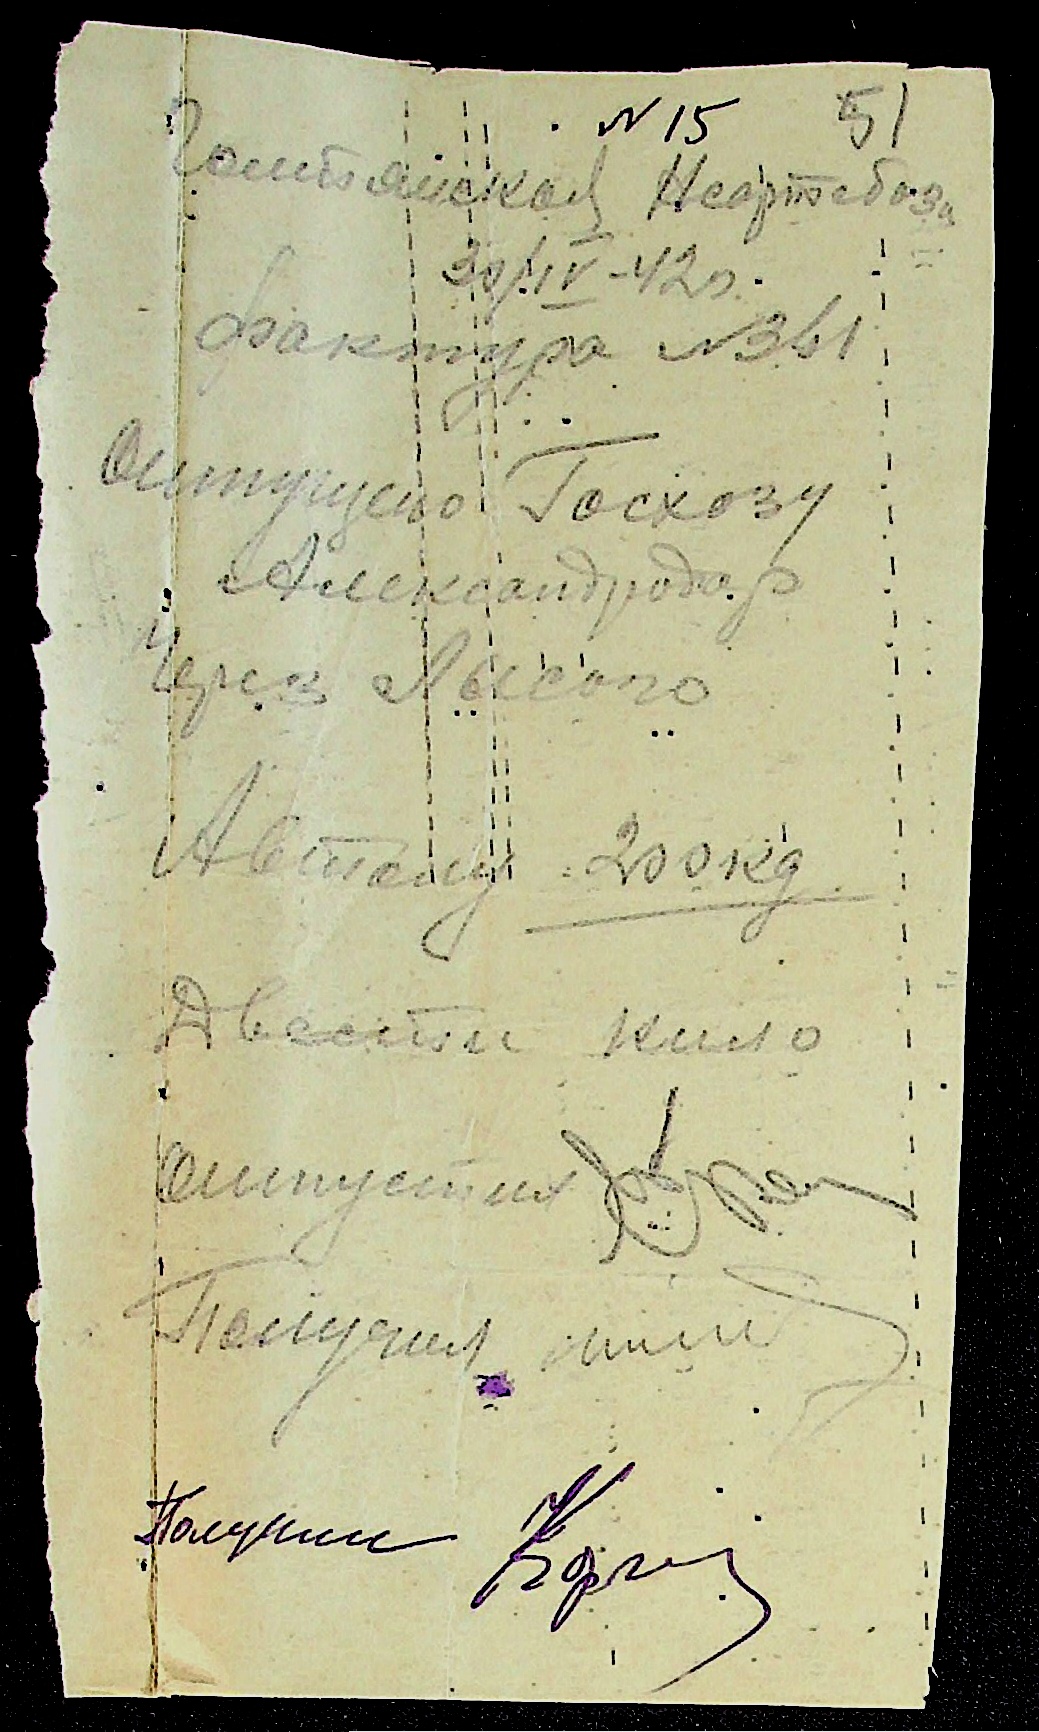 N 15 51
Голтянской Нефтебаза
30/IV-42г.
фактура N361
Отпущено Госхозу
Александродар
Через Лысого
Автолу 200кг
Двести кило
Отпустил
Получил
Получил